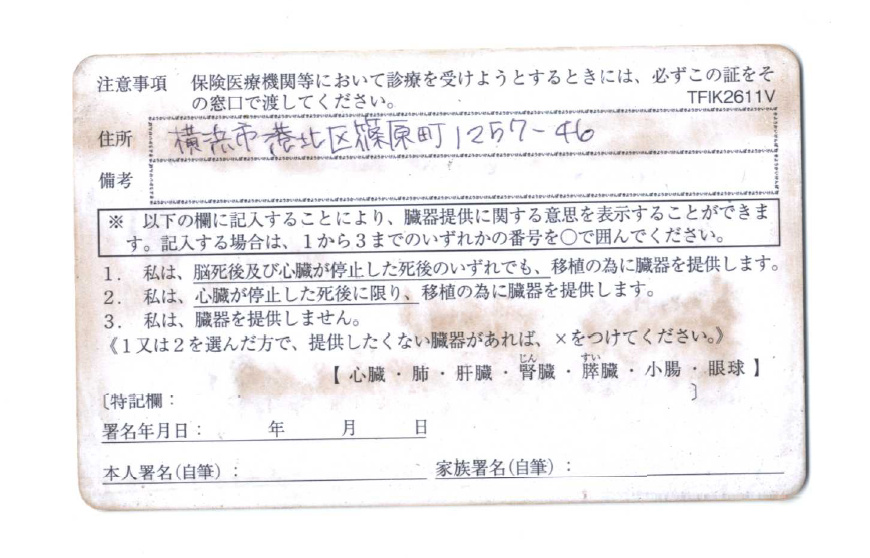 注意事項 保険医療機関等において診療を受けようとするときには、必ずこの証をそ
の窓口で渡してください。 TFIK2611V
住所 横浜市港北区篠原町1257-46
備考
※ 以下の欄に記入することにより、臓器提供に関する意思を表示することができま
す。記入する場合は、1から3までのいずれかの番号を○で囲んでください。
1. 私は、脳死後及び心臓が停止した死後のいずれでも、移植の為に臓器を提供します。
2. 私は、心臓が停止した死後に限り、移植の為に臓器を提供します。
3. 私は、臓器を提供しません。
《1又は2を選んだ方で、提供したくない臓器があれば、×をつけてください。》
じん すい
【 心臓・肺・肝臓・腎臓・膵臓・小腸・眼球 】
〔特記欄: 〕
署名年月日: 年 月 日
本人署名(自筆): 家族署名(自筆):